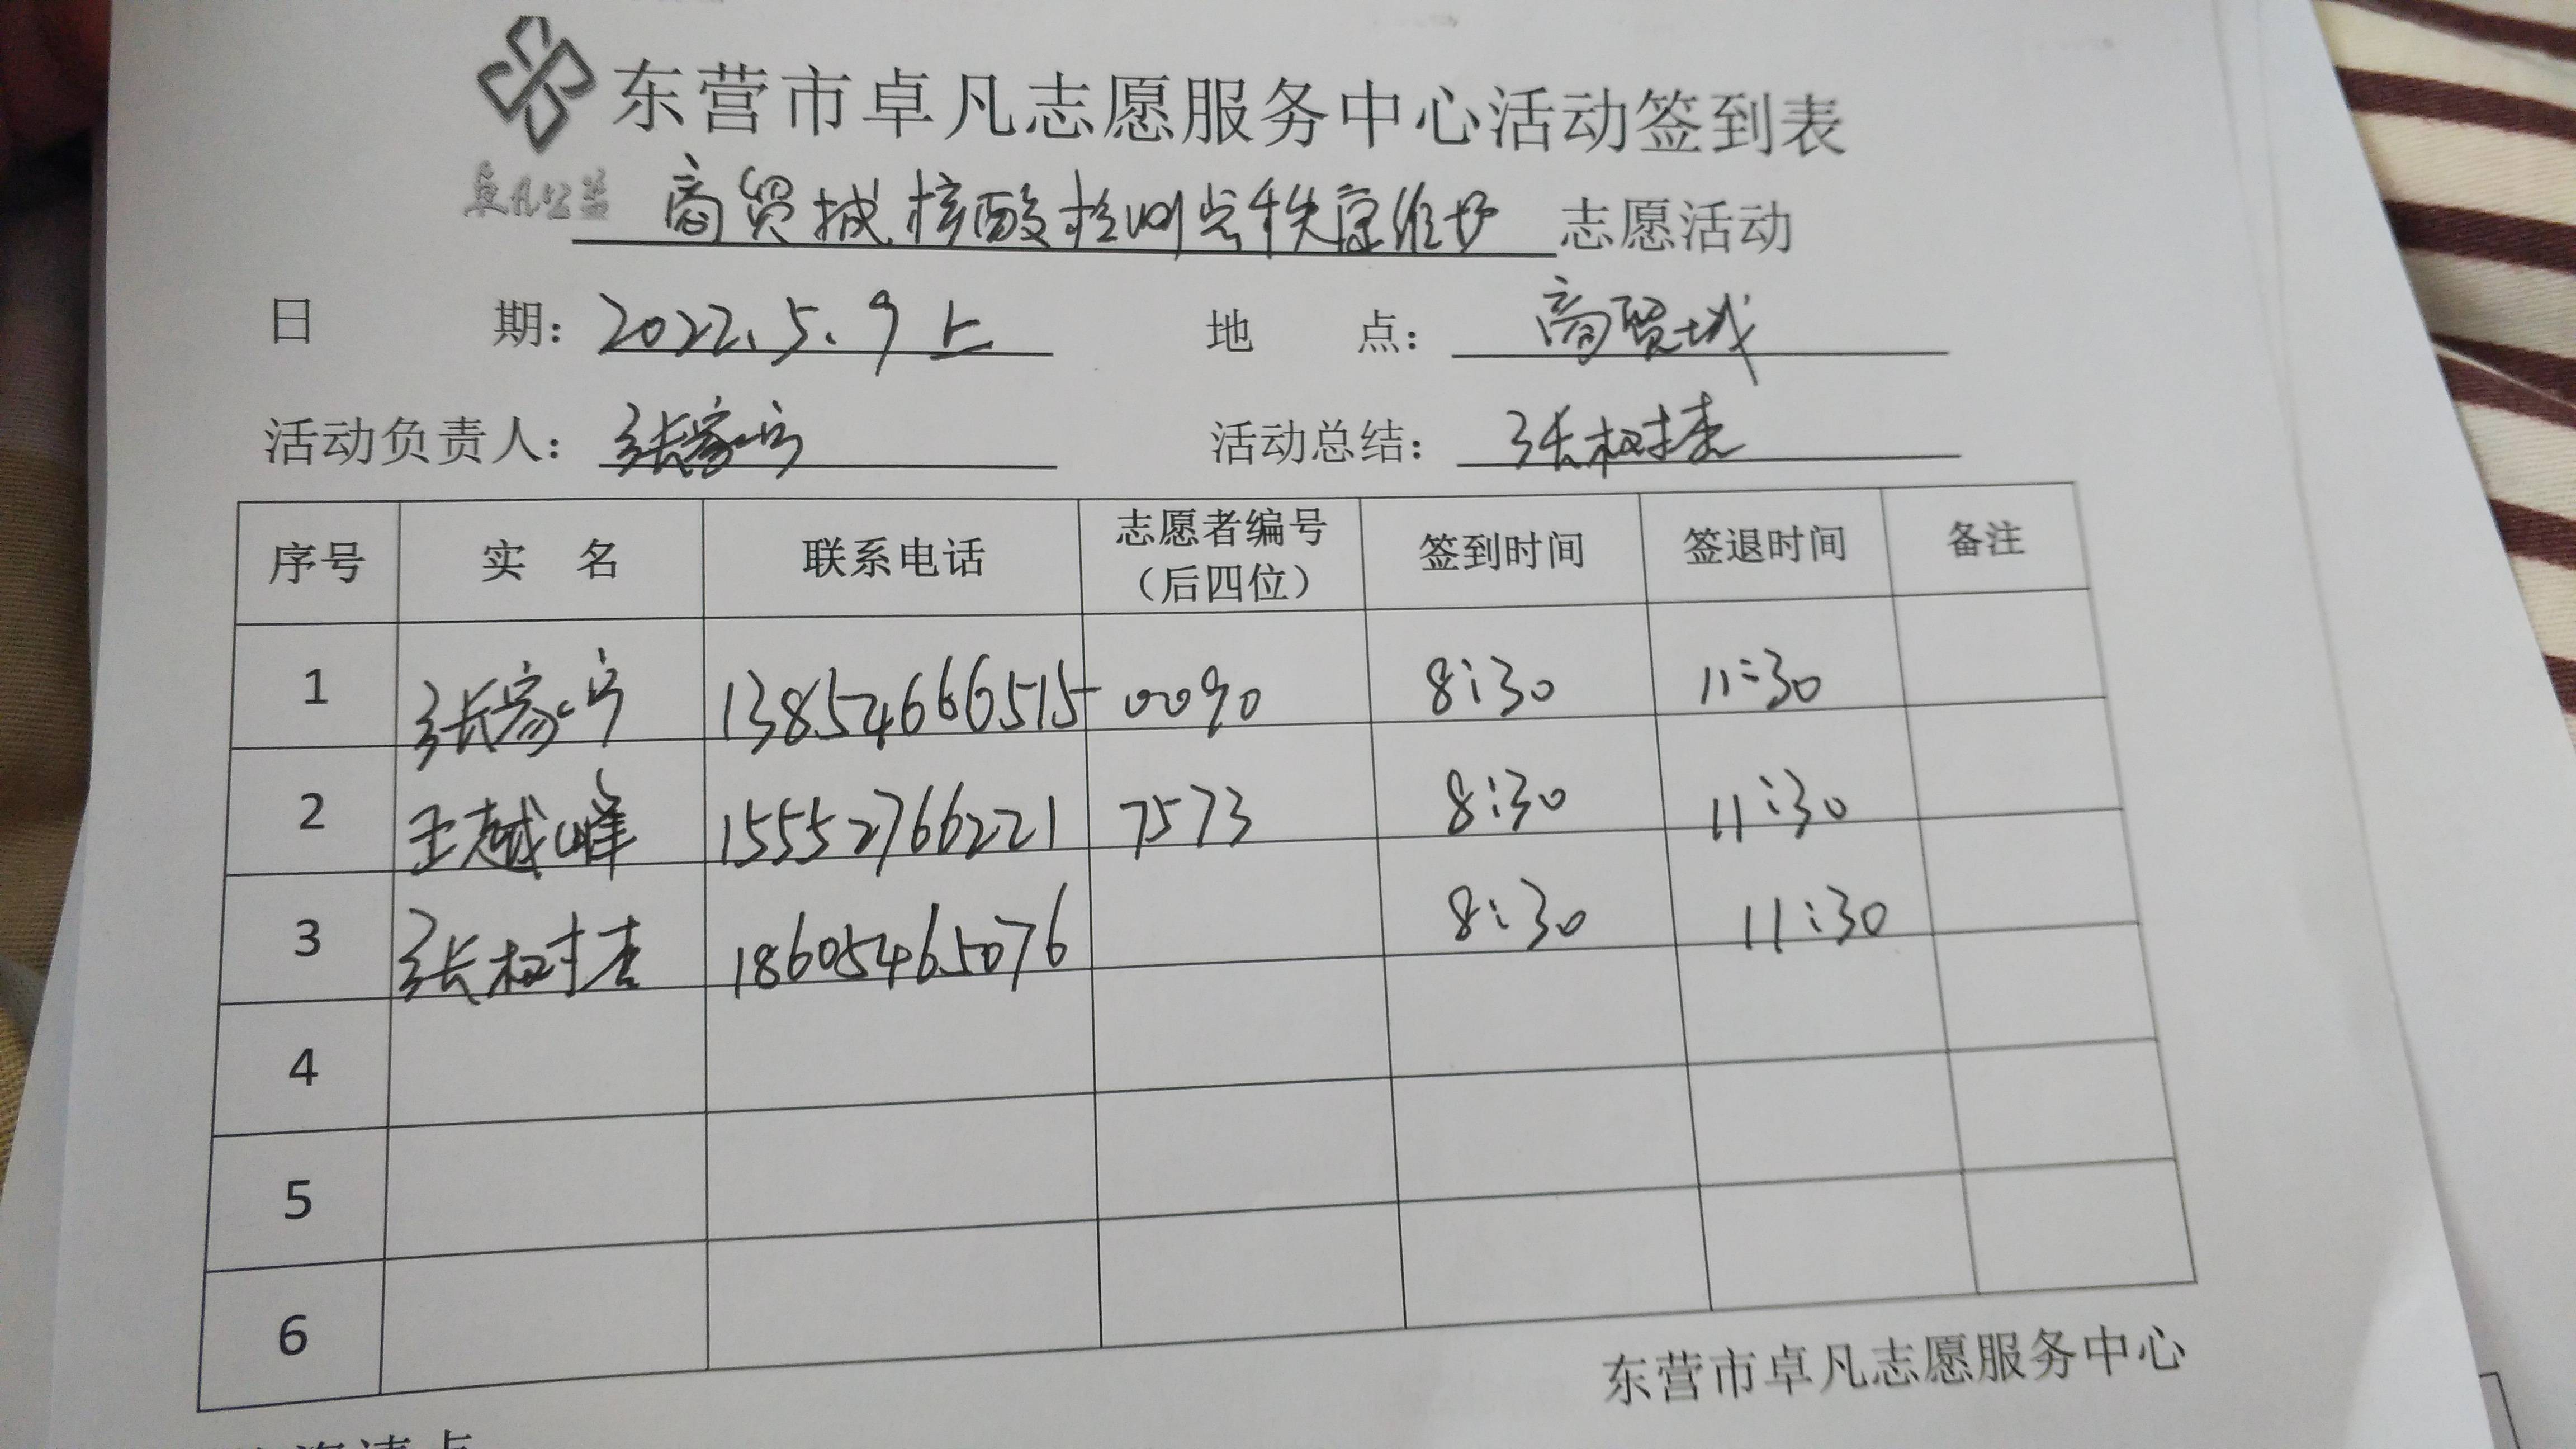 东营市卓凡志愿服务中心活动签到表
卓凡公益
商贸城核酸检测点秩序维护 志愿活动
日 期: 2022.5.9 上 地 点: 商贸城
活动负责人: 张家 活动总结: 张树杰
序号 实 名 联系电话 志愿者编号（后四位） 签到时间 签退时间 备注
1 张家 13854666515 0090 8:30 11:30
2 王越峰 15552766221 7573 8:30 11:30
3 张树杰 18605465076 8:30 11:30
4
5
6
东营市卓凡志愿服务中心